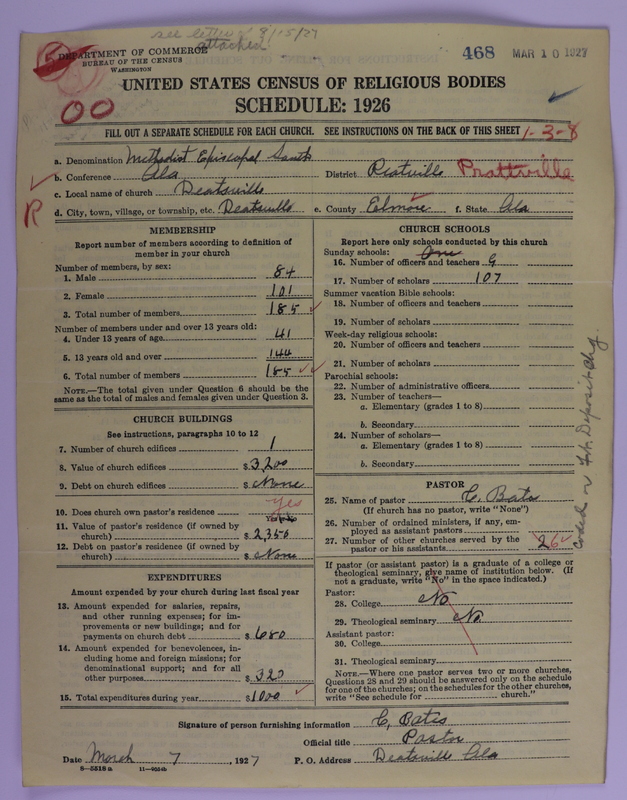 see letter of 8/15/27
attached
DEPARTMENT OF COMMERCE
BUREAU OF THE CENSUS
WASHINGTON
468 MAR 10 1927
UNITED STATES CENSUS OF RELIGIOUS BODIES
SCHEDULE: 1926
00
FILL OUT A SEPARATE SCHEDULE FOR EACH CHURCH. SEE INSTRUCTIONS ON THE BACK OF THIS SHEET
1-3-8
a. Denomination Methodist Episcopal South
b. Conference Ala District Pratville Prattville
c. Local name of church Deatsville
R
d. City, town, village, or township, etc. Deatsville e. County Elmore f. State Ala
MEMBERSHIP
Report number of members according to definition of
member in your church
Number of members, by sex:
1. Male 84
2. Female 101
3. Total number of members 185
Number of members under and over 13 years old:
4. Under 13 years of age 41
5. 13 years old and over 144
6. Total number of members 185
NOTE.—The total given under Question 6 should be the
same as the total of males and females given under Question 3.
CHURCH BUILDINGS
See instructions, paragraphs 10 to 12
7. Number of church edifices 1
8. Value of church edifices $ 3200
9. Debt on church edifices $ None
10. Does church own pastor's residence yes
11. Value of pastor's residence (if owned by
church) $ 2350
12. Debt on pastor's residence (if owned by
church) $ None
EXPENDITURES
Amount expended by your church during last fiscal year
13. Amount expended for salaries, repairs,
and other running expenses; for im-
provements or new buildings; and for
payments on church debt $ 680
14. Amount expended for benevolences, in-
cluding home and foreign missions; for
denominational support; and for all
other purposes $ 320
15. Total expenditures during year $ 1000
CHURCH SCHOOLS
Report here only schools conducted by this church
Sunday schools: One
16. Number of officers and teachers 9
17. Number of scholars 107
Summer vacation Bible schools:
18. Number of officers and teachers
19. Number of scholars
Week-day religious schools:
20. Number of officers and teachers
21. Number of scholars
Parochial schools:
22. Number of administrative officers
23. Number of teachers—
a. Elementary (grades 1 to 8)
b. Secondary
24. Number of scholars—
a. Elementary (grades 1 to 8)
b. Secondary
PASTOR
25. Name of pastor C. Bates
(If church has no pastor, write "None")
26. Number of ordained ministers, if any, em-
ployed as assistant pastors
27. Number of other churches served by the
pastor or his assistants 6
If pastor (or assistant pastor) is a graduate of a college or
theological seminary, give name of institution below. (If
not a graduate, write "No" in the space indicated.)
Pastor:
28. College No
29. Theological seminary No
Assistant pastor:
30. College
31. Theological seminary
NOTE.—Where one pastor serves two or more churches,
Questions 28 and 29 should be answered only on the schedule
for one of the churches; on the schedules for the other churches,
write "See schedule for church."
Signature of person furnishing information C. Bates
Official title Pastor
Date March 7, 1927 P. O. Address Deatsville Ala
8—5518a 11—9054b